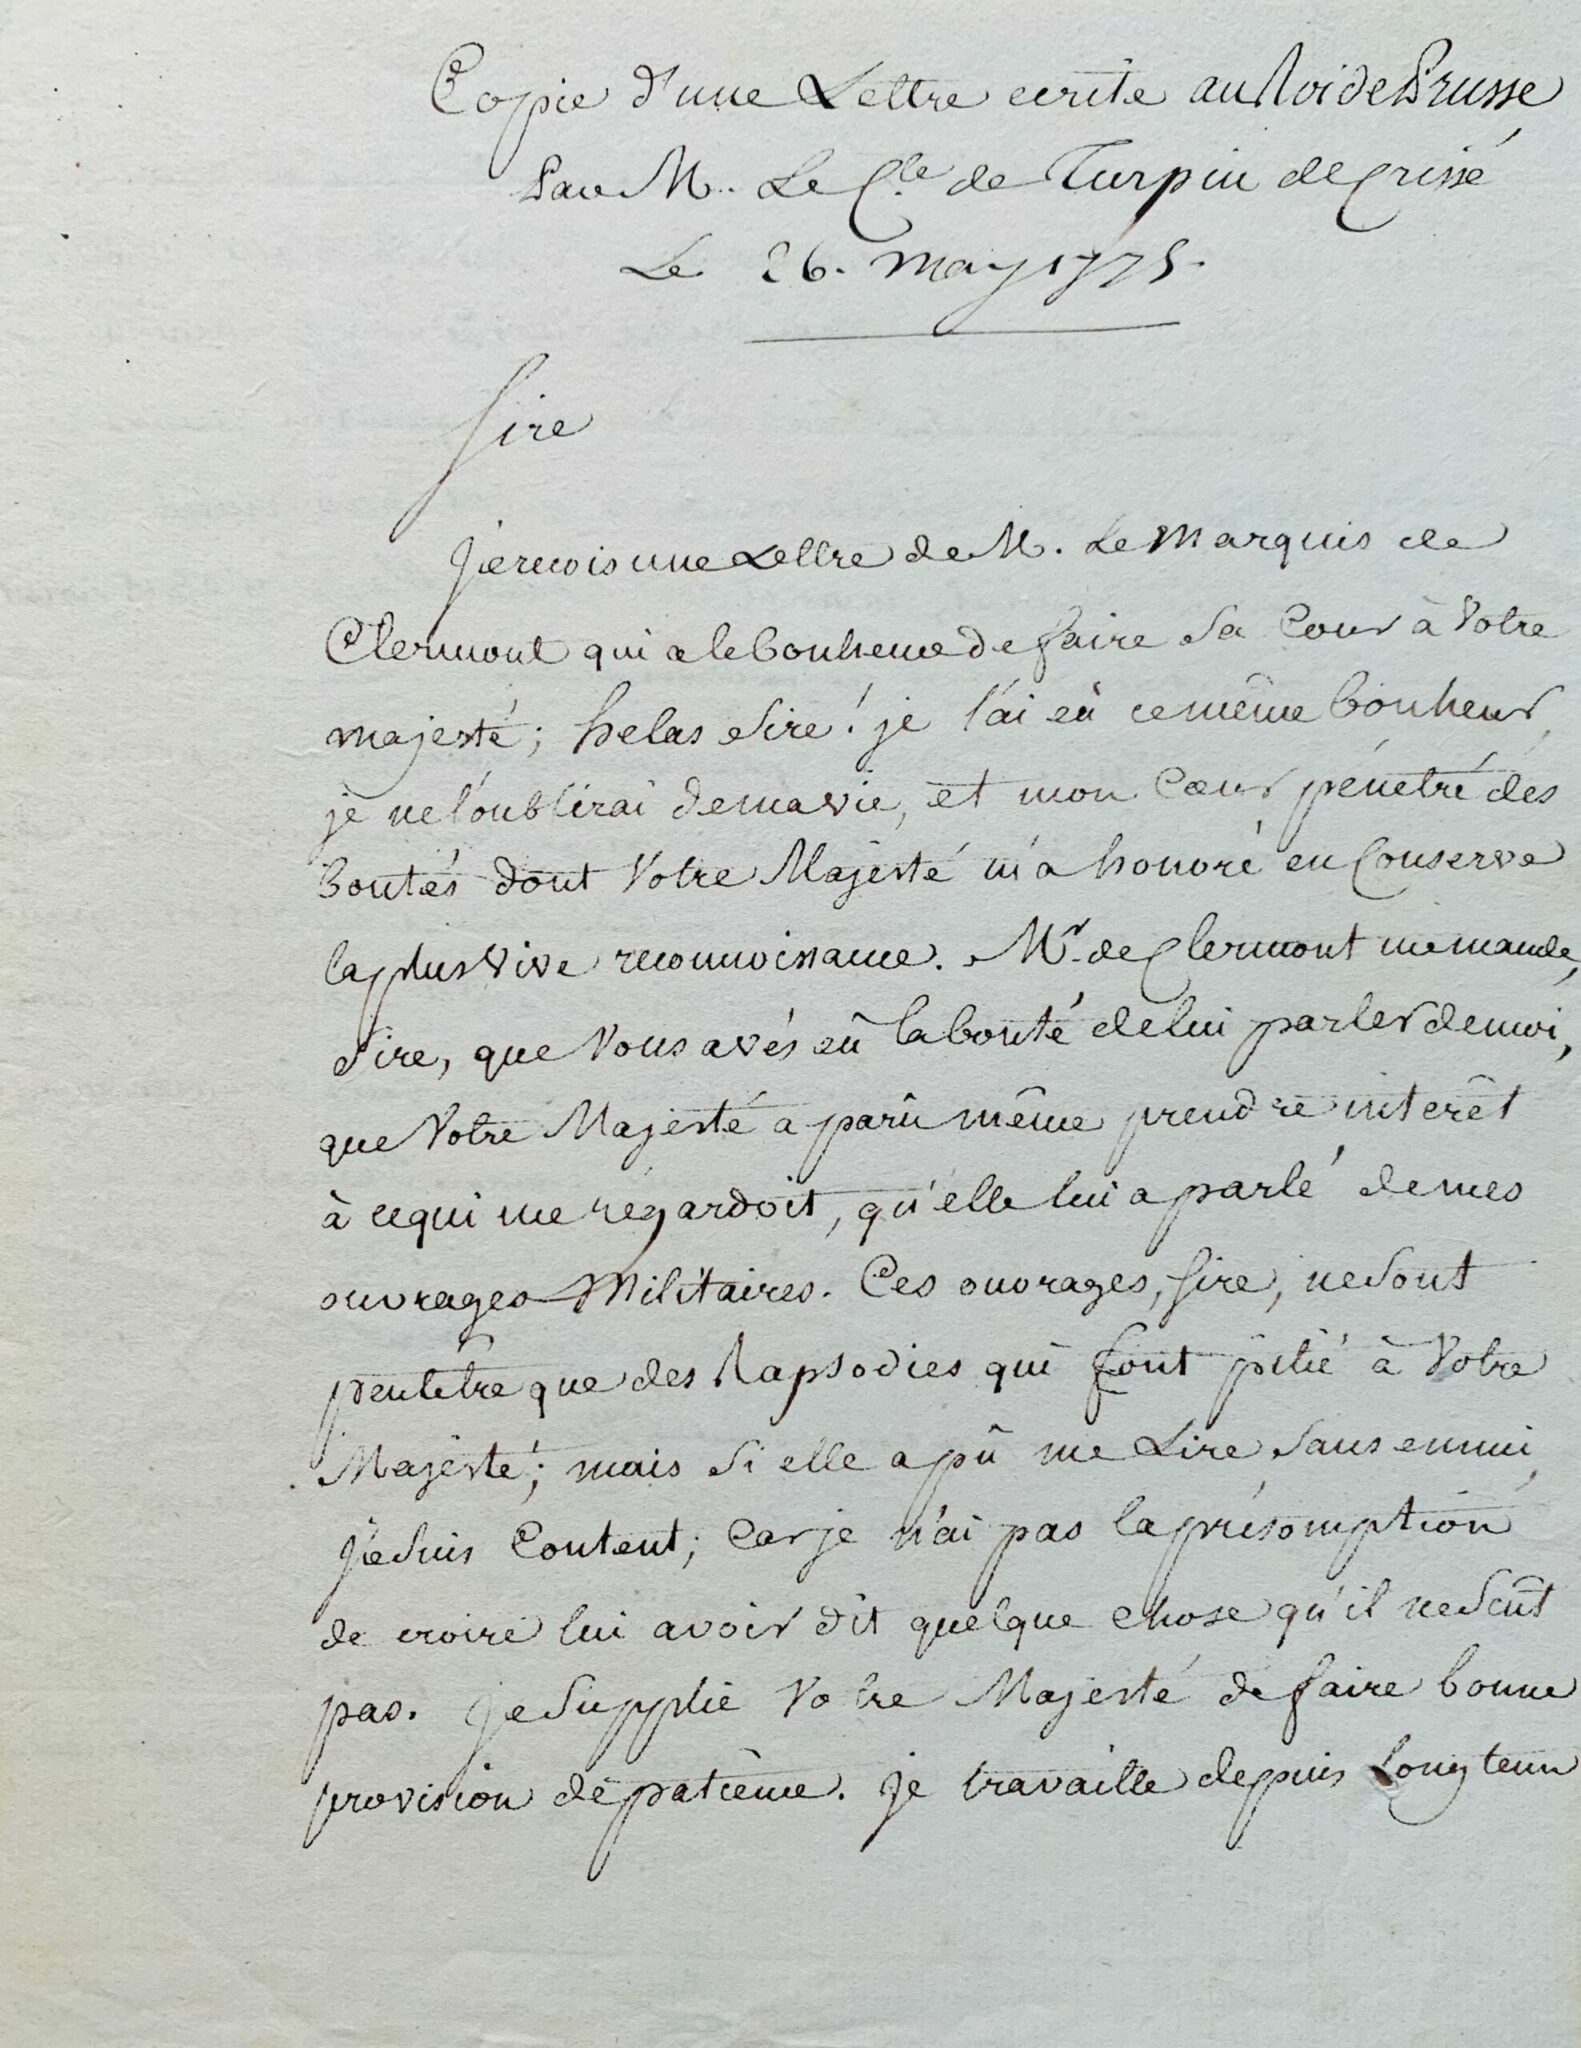 Copie d'une Lettre ecrite au Roi de Prusse
Par M. Le Cte de Turpin de Crissé
Le 26. may 1775.
Sire
Je recois une Lettre de M. Le Marquis de
Clermont qui a le bonheur de faire sa Cour à Votre
majesté; helas Sire! je l'ai eû ce même bonheur,
je ne l'oublirai de ma vie, et mon Cœur pénétré des
bontés dont Votre Majesté m'a honoré en Conserve
la plus vive reconnoissance. Mr. de Clermont me mande,
Sire, que Vous avés eû la bonté de lui parler de moi,
que Votre Majesté a parû même prendre interêt
à ce qui me régardoit, qu'elle lui a parlé de mes
ouvrages Militaires. Ces ouvrages, Sire, ne sont
peut être que des Rapsodies qui font pitié à Votre
Majesté; mais si elle a pû me Lire sans ennui,
je suis Content; Car je n'ai pas la présomption
de croire lui avoir dit quelque chose qu'il ne sçût
pas. Je supplie Votre Majesté de faire bonne
provision de patience. Je travaille depuis Longtems